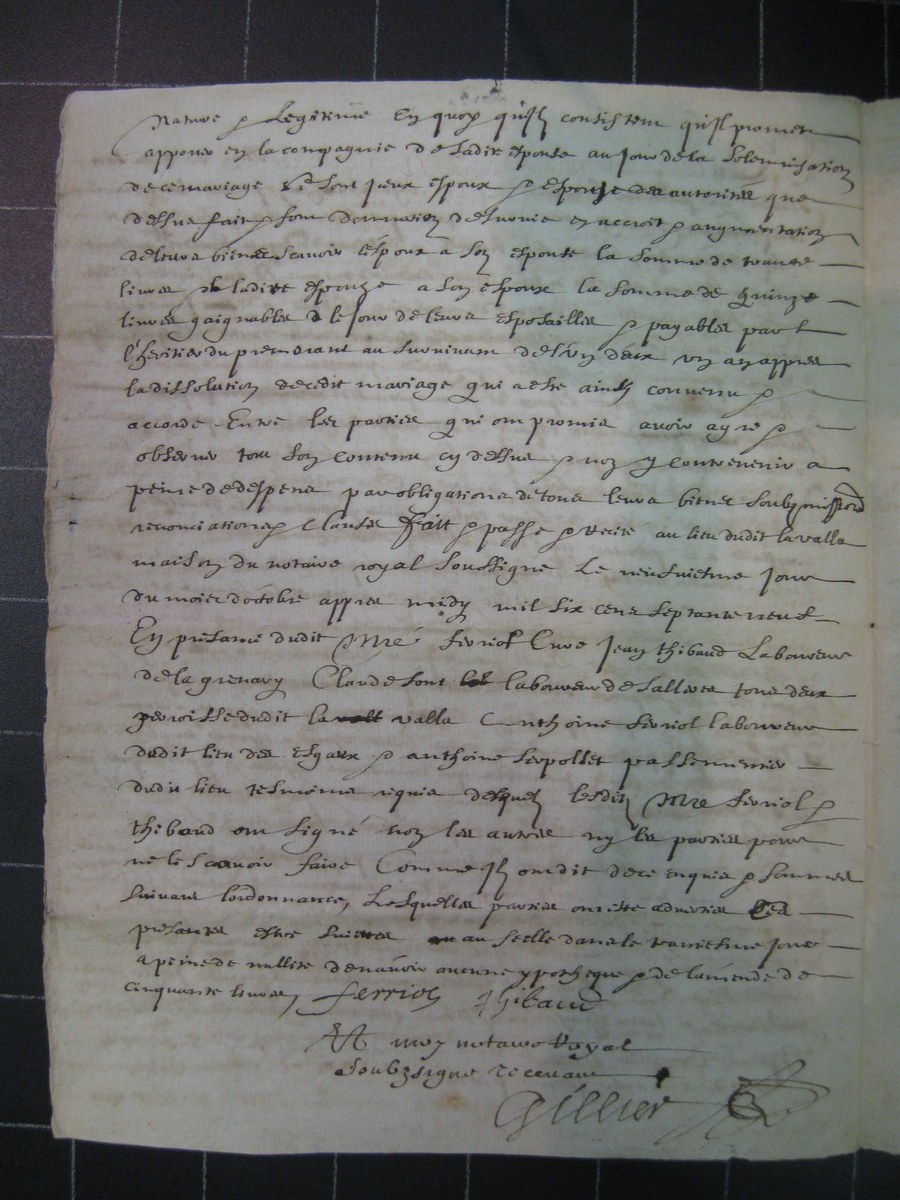 Nature & Legitime En quoy qu'ilz consistent qu'il promet
apporter en la compagnie de sadite espouse au jour de la solemnisation
de ce mariage & se sont iceux espoux & espouse des autorites que
dessus fait & font donnation de survie en accroit & augmentation
de leurs biens scavoir l'espoux a son espouse la somme de trante
livres & ladite espouze a son espoux la somme de quinze
livres gaignables le jour de leurs esposailles & payables par
l'heritier du premourant au survivant de s'un deux un an appres
la dissolution de cedit mariage qui a este ainsy convenu &
accorde Entre les parties qui ont promis avoir agre &
observer tout son contenu cy dessus & non y contrevenir a
peine de despens par obligations de tous leurs biens soubzmissions
renonciations & clauses fait & passe & recite au lieu dudit lavalla
maison du notaire royal soussigne Le neufvieme jour
du mois doctobre appres midy mil six cens septante neuf
En presance dudit Mre ferriol Cure Jean thibaud Laboureur
de la grenary Claude font laboureur de salleres tous deux
perroisse dudit la valla Anthoine ferriol laboureur
dudit lieu des esgaux & anthoine serpollet passementier
dudit lieu tesmoins requis desquelz lesditz Mre ferriol &
thibaud ont signé non les autres ny les parties pour
ne le scavoir faire Comme ilz ont dit de ce enquis & sommes
suivant lordonnance, Lesquelles parties ont este adverties Les
presantes estre sujettes au seelle dans le trantieme jour
a peine de nullite denavoir aucune ypotheque & de lamende de
cinquante livres ferriol Thibaud
Et moy notaire Royal
soubzsigne recevant
Gillier